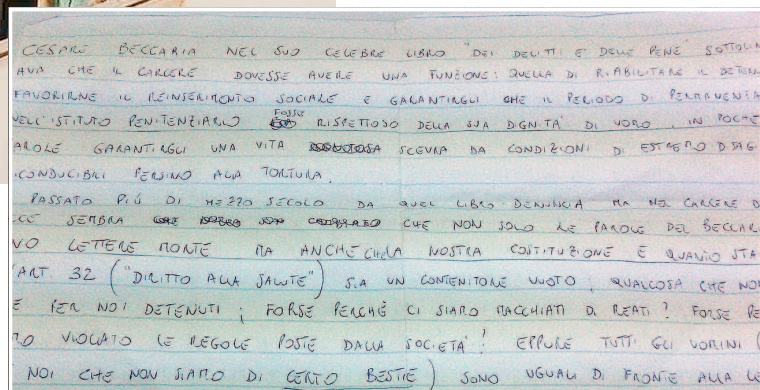 CESARE BECCARIA NEL SUO CELEBRE LIBRO "DEI DELITTI E DELLE PENE" SOTTOLIN
AVA CHE IL CARCERE DOVESSE AVERE UNA FUNZIONE: QUELLA DI RIABILITARE IL DETEN
FAVORIRNE IL REINSERIMENTO SOCIALE E GARANTIRGLI CHE IL PERIODO DI PERMANENZA
NELL'ISTITUTO PENITENZIARIO FOSSE RISPETTOSO DELLA SUA DIGNITA' DI UOMO, IN POCHE
AROLE GARANTIRGLI UNA VITA SCEVRA DA CONDIZIONI DI ESTREMO DISAG
ICONDUCIBILI PERSINO ALLA TORTURA.
PASSATO PIÚ DI MEZZO SECOLO DA QUEL LIBRO DENUNCIA MA NEL CARCERE D
CCE SEMBRA CHE NON SOLO LE PAROLE DEL BECCAR
NO LETTERE MORTE MA ANCHE CHE LA NOSTRA COSTITUZIONE E QUANTO STA
'ART. 32 ("DIRITTO ALLA SALUTE") SIA UN CONTENITORE VUOTO, QUALCOSA CHE NON
E PER NOI DETENUTI; FORSE PERCHÉ CI SIAMO MACCHIATI DI REATI? FORSE PE
MO VIOLATO LE REGOLE POSTE DALLA SOCIETA'? EPPURE TUTTI GLI UOMINI (
NOI CHE NON SIAMO DI CERTO BESTIE) SONO UGUALI DI FRONTE ALLA LE